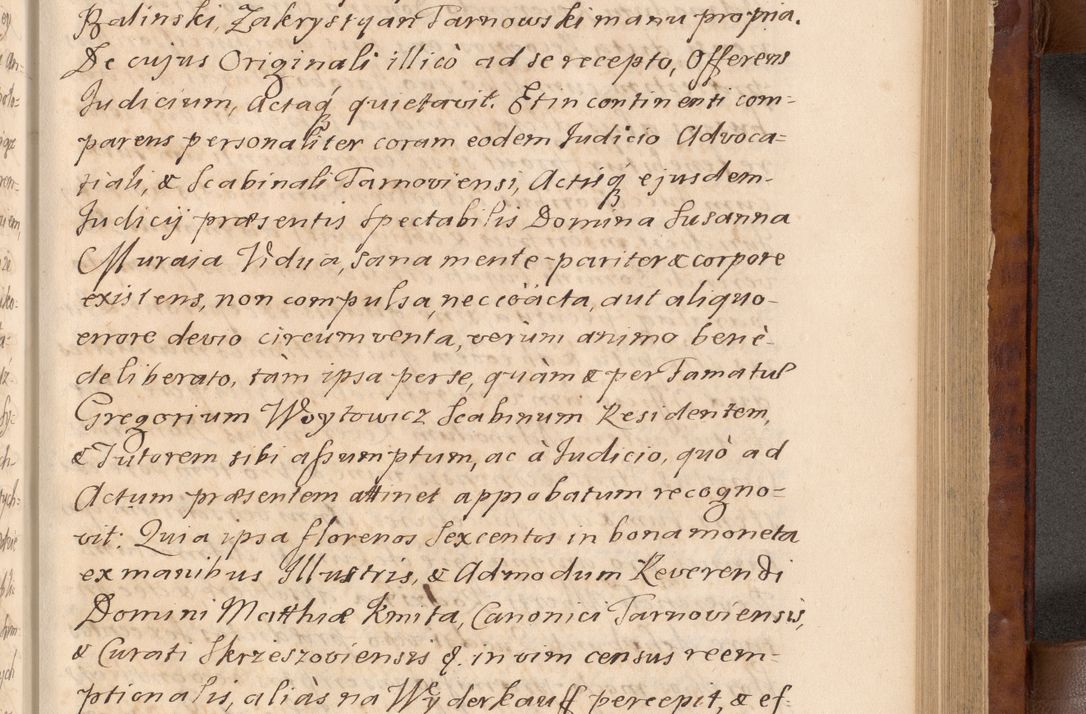 Balinski, Zakrystyan Tarnowski manu propria.
De cujus Originali illicò ad se recepto, Offerens
Judicium, Actaq́ quietavit. Et in continenti com=
parens personaliter coram eodem Judicio Advoca=
tiali, & Scabinali Tarnoviensi, Actisq́ ejusdem
Judicij præsentis Spectabilis Domina Susanna
Muraia Vidua, sana mente pariter & corpore
existens, non compulsa, nec coacta, aut aliquo
errore devio circumventa, verùm animo benè
deliberato, tàm ipsa per se, quàm & per Famatū
Gregorium Woytowicz Scabinum Residentem,
& Tutorem sibi assumptum, ac à Judicio, quò ad
Actum præsentem attinet approbatum recogno=
vit: Quia ipsa florenos Sexcentos in bona moneta
ex manibus Illustris, & Admodum Reverendi
Domini Matthiæ Kmita, Canonici Tarnoviensis,
& Curati Skrzeszoviensis &. in vim census reem=
ptionalis, aliàs na Wyderkauff percepit, & ef=